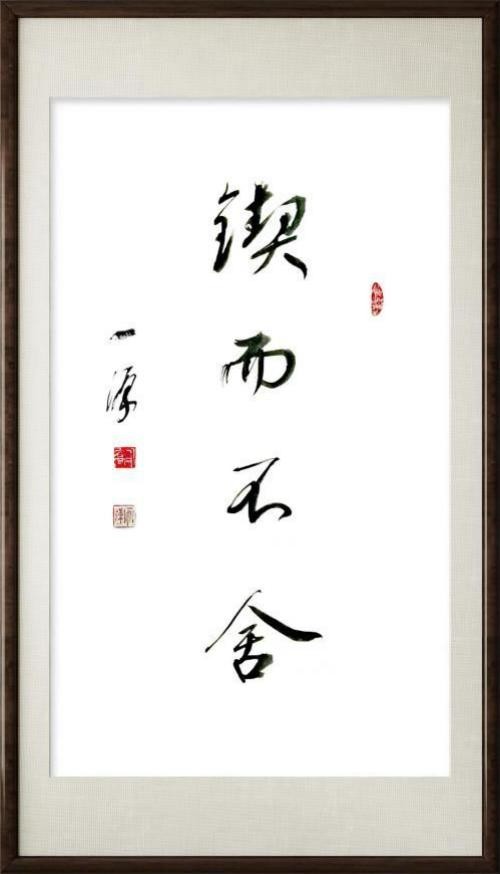 锲而不舍
一源